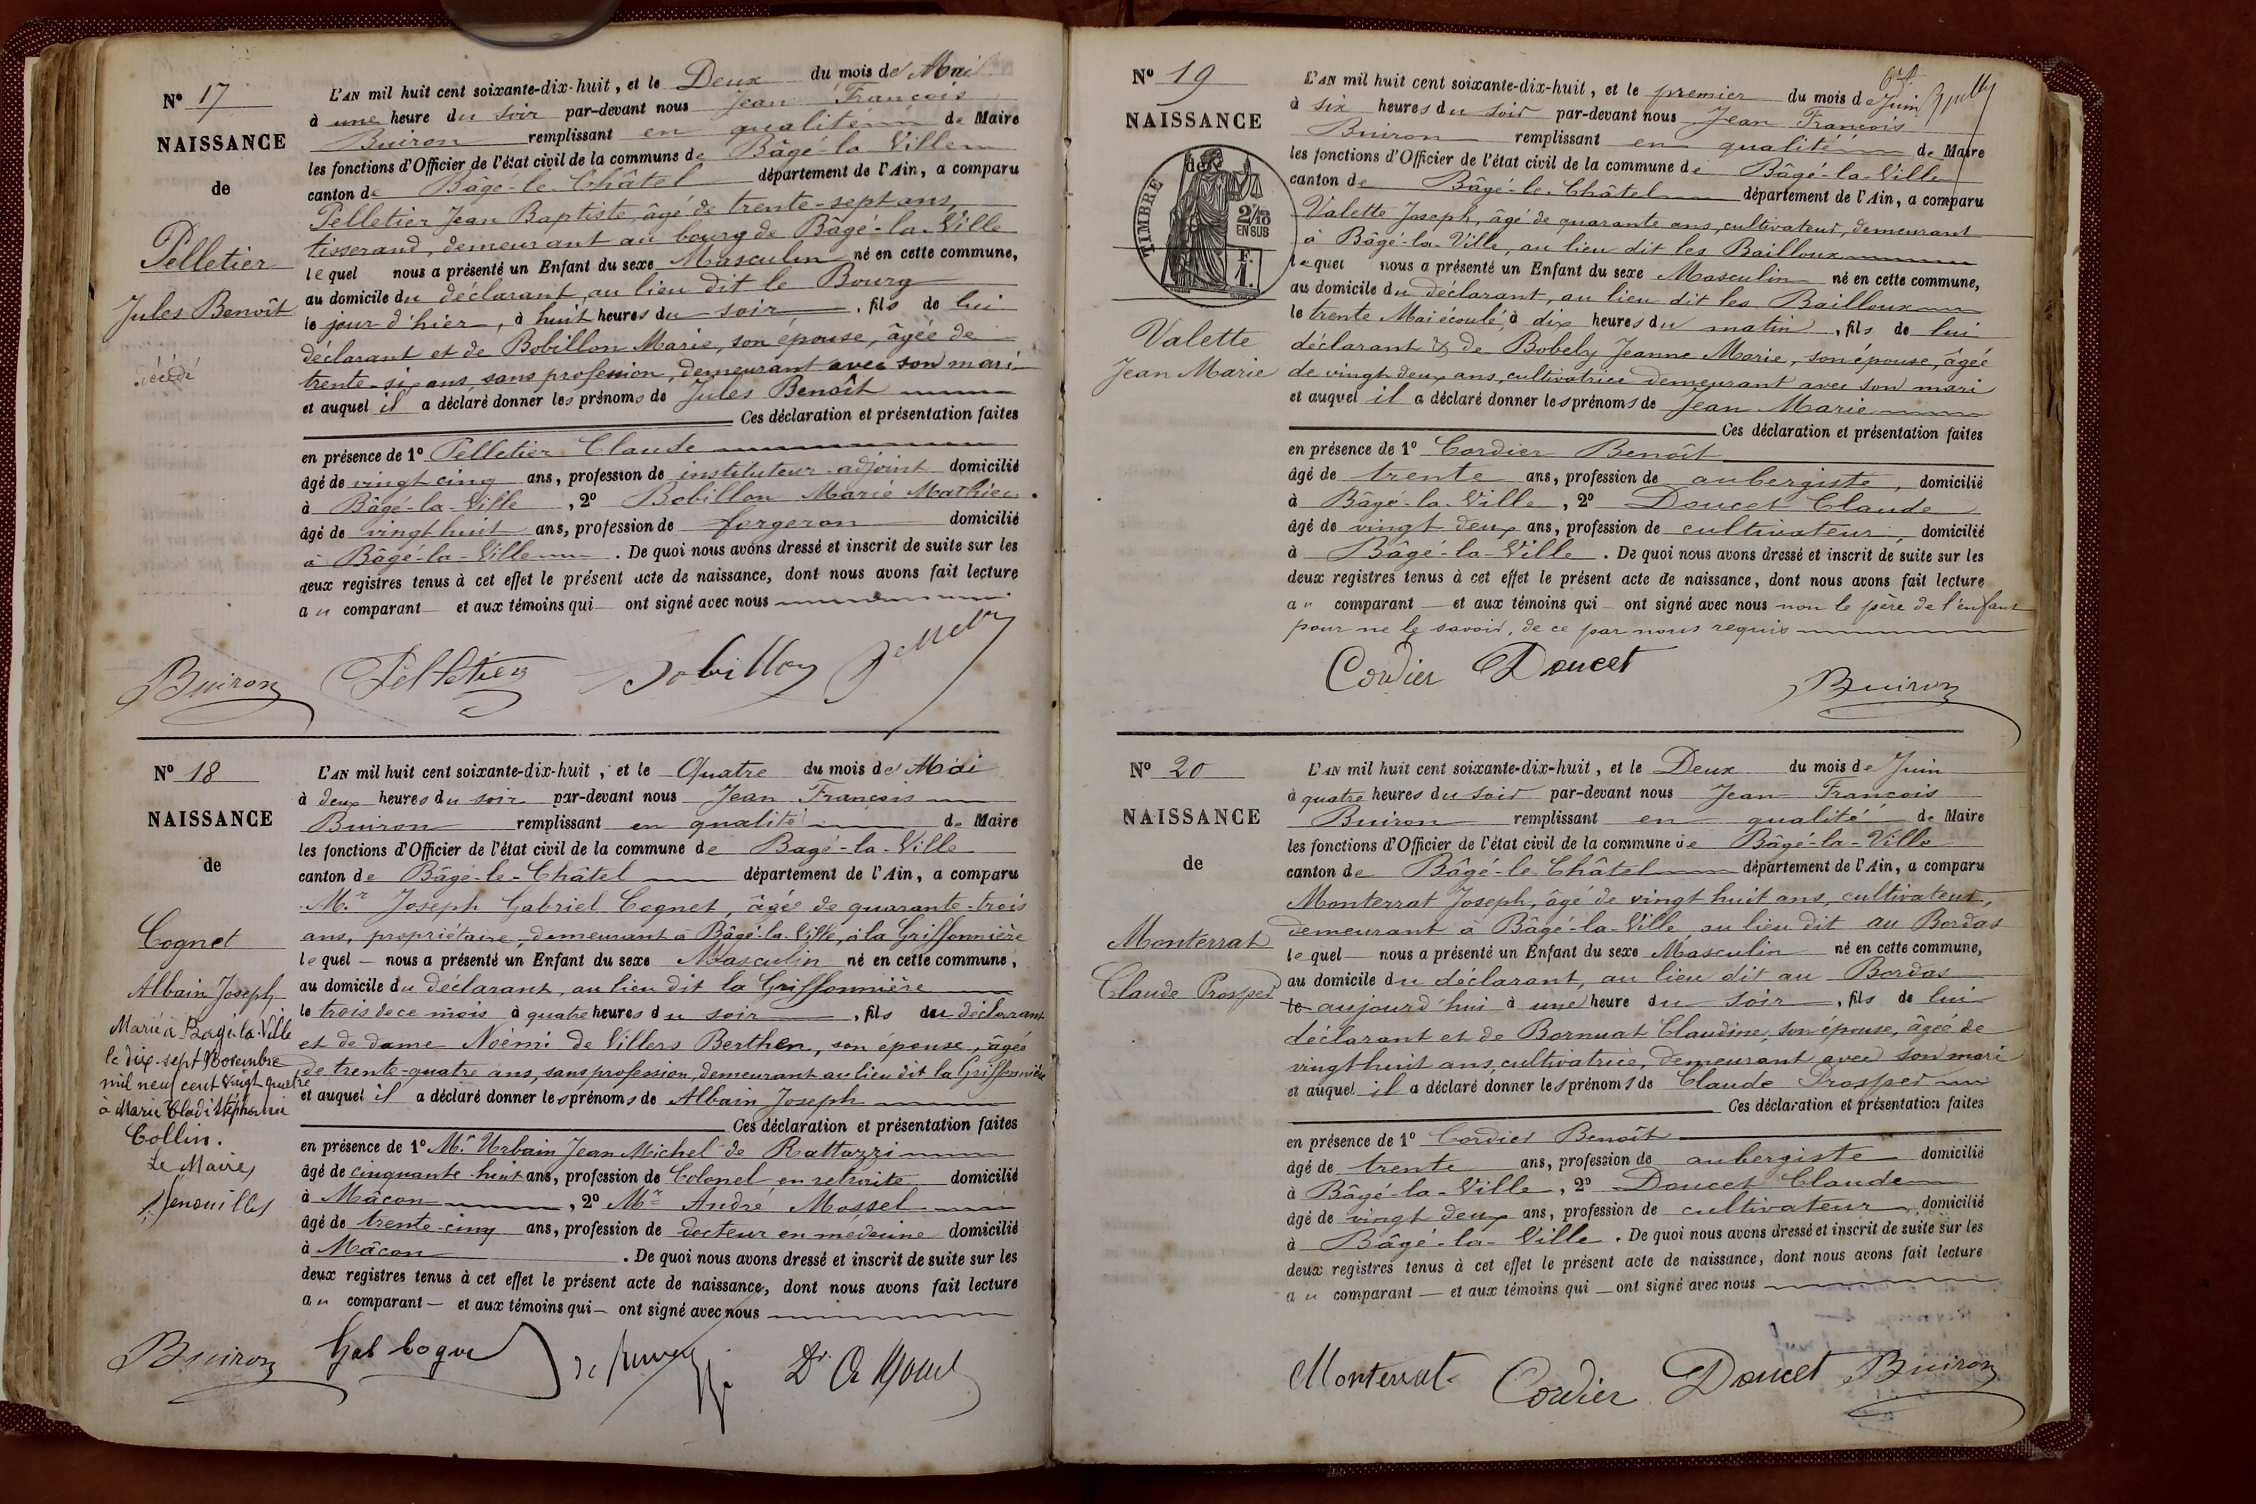 N° 17
NAISSANCE
de
Pelletier
Jules Benoît
décédé
L'AN mil huit cent soixante-dix-huit, et le Deux du mois de Mai
à une heure du soir par-devant nous Jean François
Buiron remplissant en qualité de Maire
les fonctions d'Officier de l'état civil de la commune de Bâgé-la-Ville
canton de Bâgé-le-Châtel département de l'Ain, a comparu
Pelletier Jean Baptiste, âgé de trente-sept ans,
tisserand, demeurant au bourg de Bâgé-la-Ville
lequel nous a présenté un Enfant du sexe Masculin né en cette commune,
au domicile du déclarant, au lieu dit le Bourg
le jour d'hier, à huit heures du soir, fils de lui
déclarant et de Bobillon Marie, son épouse, âgée de
trente-six ans, sans profession, demeurant avec son mari
et auquel il a déclaré donner les prénoms de Jules Benoît
Ces déclaration et présentation faites
en présence de 1° Pelletier Claude
âgé de vingt cinq ans, profession de instituteur-adjoint domicilié
à Bâgé-la-Ville, 2° Bobillon Marie Mathieu.
âgé de vingt huit ans, profession de forgeron domicilié
à Bâgé-la-Ville. De quoi nous avons dressé et inscrit de suite sur les
deux registres tenus à cet effet le présent acte de naissance, dont nous avons fait lecture
au comparant et aux témoins qui ont signé avec nous
Buiron Pelletier Bobillon Pelletier
N° 18
NAISSANCE
de
Cognet
Albain Joseph
Marié à Bagé-la-Ville
le dix-sept Novembre
mil neuf cent vingt quatre
à Marie Stéphanie
Collin.
Le Maire,
L'AN mil huit cent soixante-dix-huit, et le Quatre du mois de Mai
à deux heures du soir par-devant nous Jean François
Buiron remplissant en qualité de Maire
les fonctions d'Officier de l'état civil de la commune de Bagé-la-Ville
canton de Bâgé-le-Châtel département de l'Ain, a comparu
M.r Joseph Gabriel Cognet, âgé de quarante-trois
ans, propriétaire, demeurant à Bâgé-la-Ville, à la Griffonnière
lequel nous a présenté un Enfant du sexe Masculin né en cette commune,
au domicile du déclarant, au lieu dit la Griffonnière
le trois de ce mois à quatre heures du soir, fils du déclarant
et de dame Noémi de Villers Berthen, son épouse, âgée
de trente-quatre ans, sans profession, demeurant au lieu dit la Griffonnière
et auquel il a déclaré donner les prénoms de Albain Joseph
Ces déclaration et présentation faites
en présence de 1° M.r Urbain Jean Michel de Rattazzi
âgé de cinquante-huit ans, profession de Colonel en retraite domicilié
à Mâcon, 2° M.r André Mossel
âgé de trente-cinq ans, profession de docteur en médecine domicilié
à Mâcon. De quoi nous avons dressé et inscrit de suite sur les
deux registres tenus à cet effet le présent acte de naissance, dont nous avons fait lecture
au comparant et aux témoins qui ont signé avec nous
Buiron Gal Cognet
N° 19
NAISSANCE
de
TIMBRE
2/10
EN SUB
F.
1.
Valette
Jean Marie
L'AN mil huit cent soixante-dix-huit, et le premier du mois de Juin
à six heures du soir par-devant nous Jean François
Buiron remplissant en qualité de Maire
les fonctions d'Officier de l'état civil de la commune de Bâgé-la-Ville
canton de Bâgé-le-Châtel département de l'Ain, a comparu
Valette Joseph, âgé de quarante ans, cultivateur, demeurant
à Bâgé-la-Ville, au lieu dit les Bailloux
lequel nous a présenté un Enfant du sexe Masculin né en cette commune,
au domicile du déclarant, au lieu dit les Bailloux
le trente Mai écoulé, à dix heures du matin, fils de lui
déclarant & de Bobely Jeanne Marie, son épouse, âgée
de vingt deux ans, cultivatrice demeurant avec son mari
et auquel il a déclaré donner les prénoms de Jean Marie
Ces déclaration et présentation faites
en présence de 1° Cordier Benoît
âgé de trente ans, profession de aubergiste, domicilié
à Bâgé-la-Ville, 2° Doucet Claude
âgé de vingt deux ans, profession de cultivateur, domicilié
à Bâgé-la-Ville. De quoi nous avons dressé et inscrit de suite sur les
deux registres tenus à cet effet le présent acte de naissance, dont nous avons fait lecture
au comparant et aux témoins qui ont signé avec nous non le père de l'enfant
pour ne le savoir, de ce par nous requis
Cordier Doucet
Buiron
N° 20
NAISSANCE
de
Monterrat
Claude Prosper
L'AN mil huit cent soixante-dix-huit, et le Deux du mois de Juin
à quatre heures du soir par-devant nous Jean François
Buiron remplissant en qualité de Maire
les fonctions d'Officier de l'état civil de la commune de Bâgé-la-Ville
canton de Bâgé-le-Châtel département de l'Ain, a comparu
Monterrat Joseph, âgé de vingt huit ans, cultivateur,
demeurant à Bâgé-la-Ville au lieu dit au Bordas
lequel nous a présenté un Enfant du sexe Masculin né en cette commune,
au domicile du déclarant, au lieu dit au Bordas
le aujourd'hui à une heure du soir, fils de lui
déclarant et de Bornuat Claudine, son épouse, âgée de
vingt huit ans, cultivatrice, demeurant avec son mari
et auquel il a déclaré donner les prénoms de Claude Prosper
Ces déclaration et présentation faites
en présence de 1° Cordier Benoît
âgé de trente ans, profession de aubergiste domicilié
à Bâgé-la-Ville, 2° Doucet Claude
âgé de vingt deux ans, profession de cultivateur, domicilié
à Bâgé-la-Ville. De quoi nous avons dressé et inscrit de suite sur les
deux registres tenus à cet effet le présent acte de naissance, dont nous avons fait lecture
au comparant et aux témoins qui ont signé avec nous
Monterrat Cordier Doucet Buiron